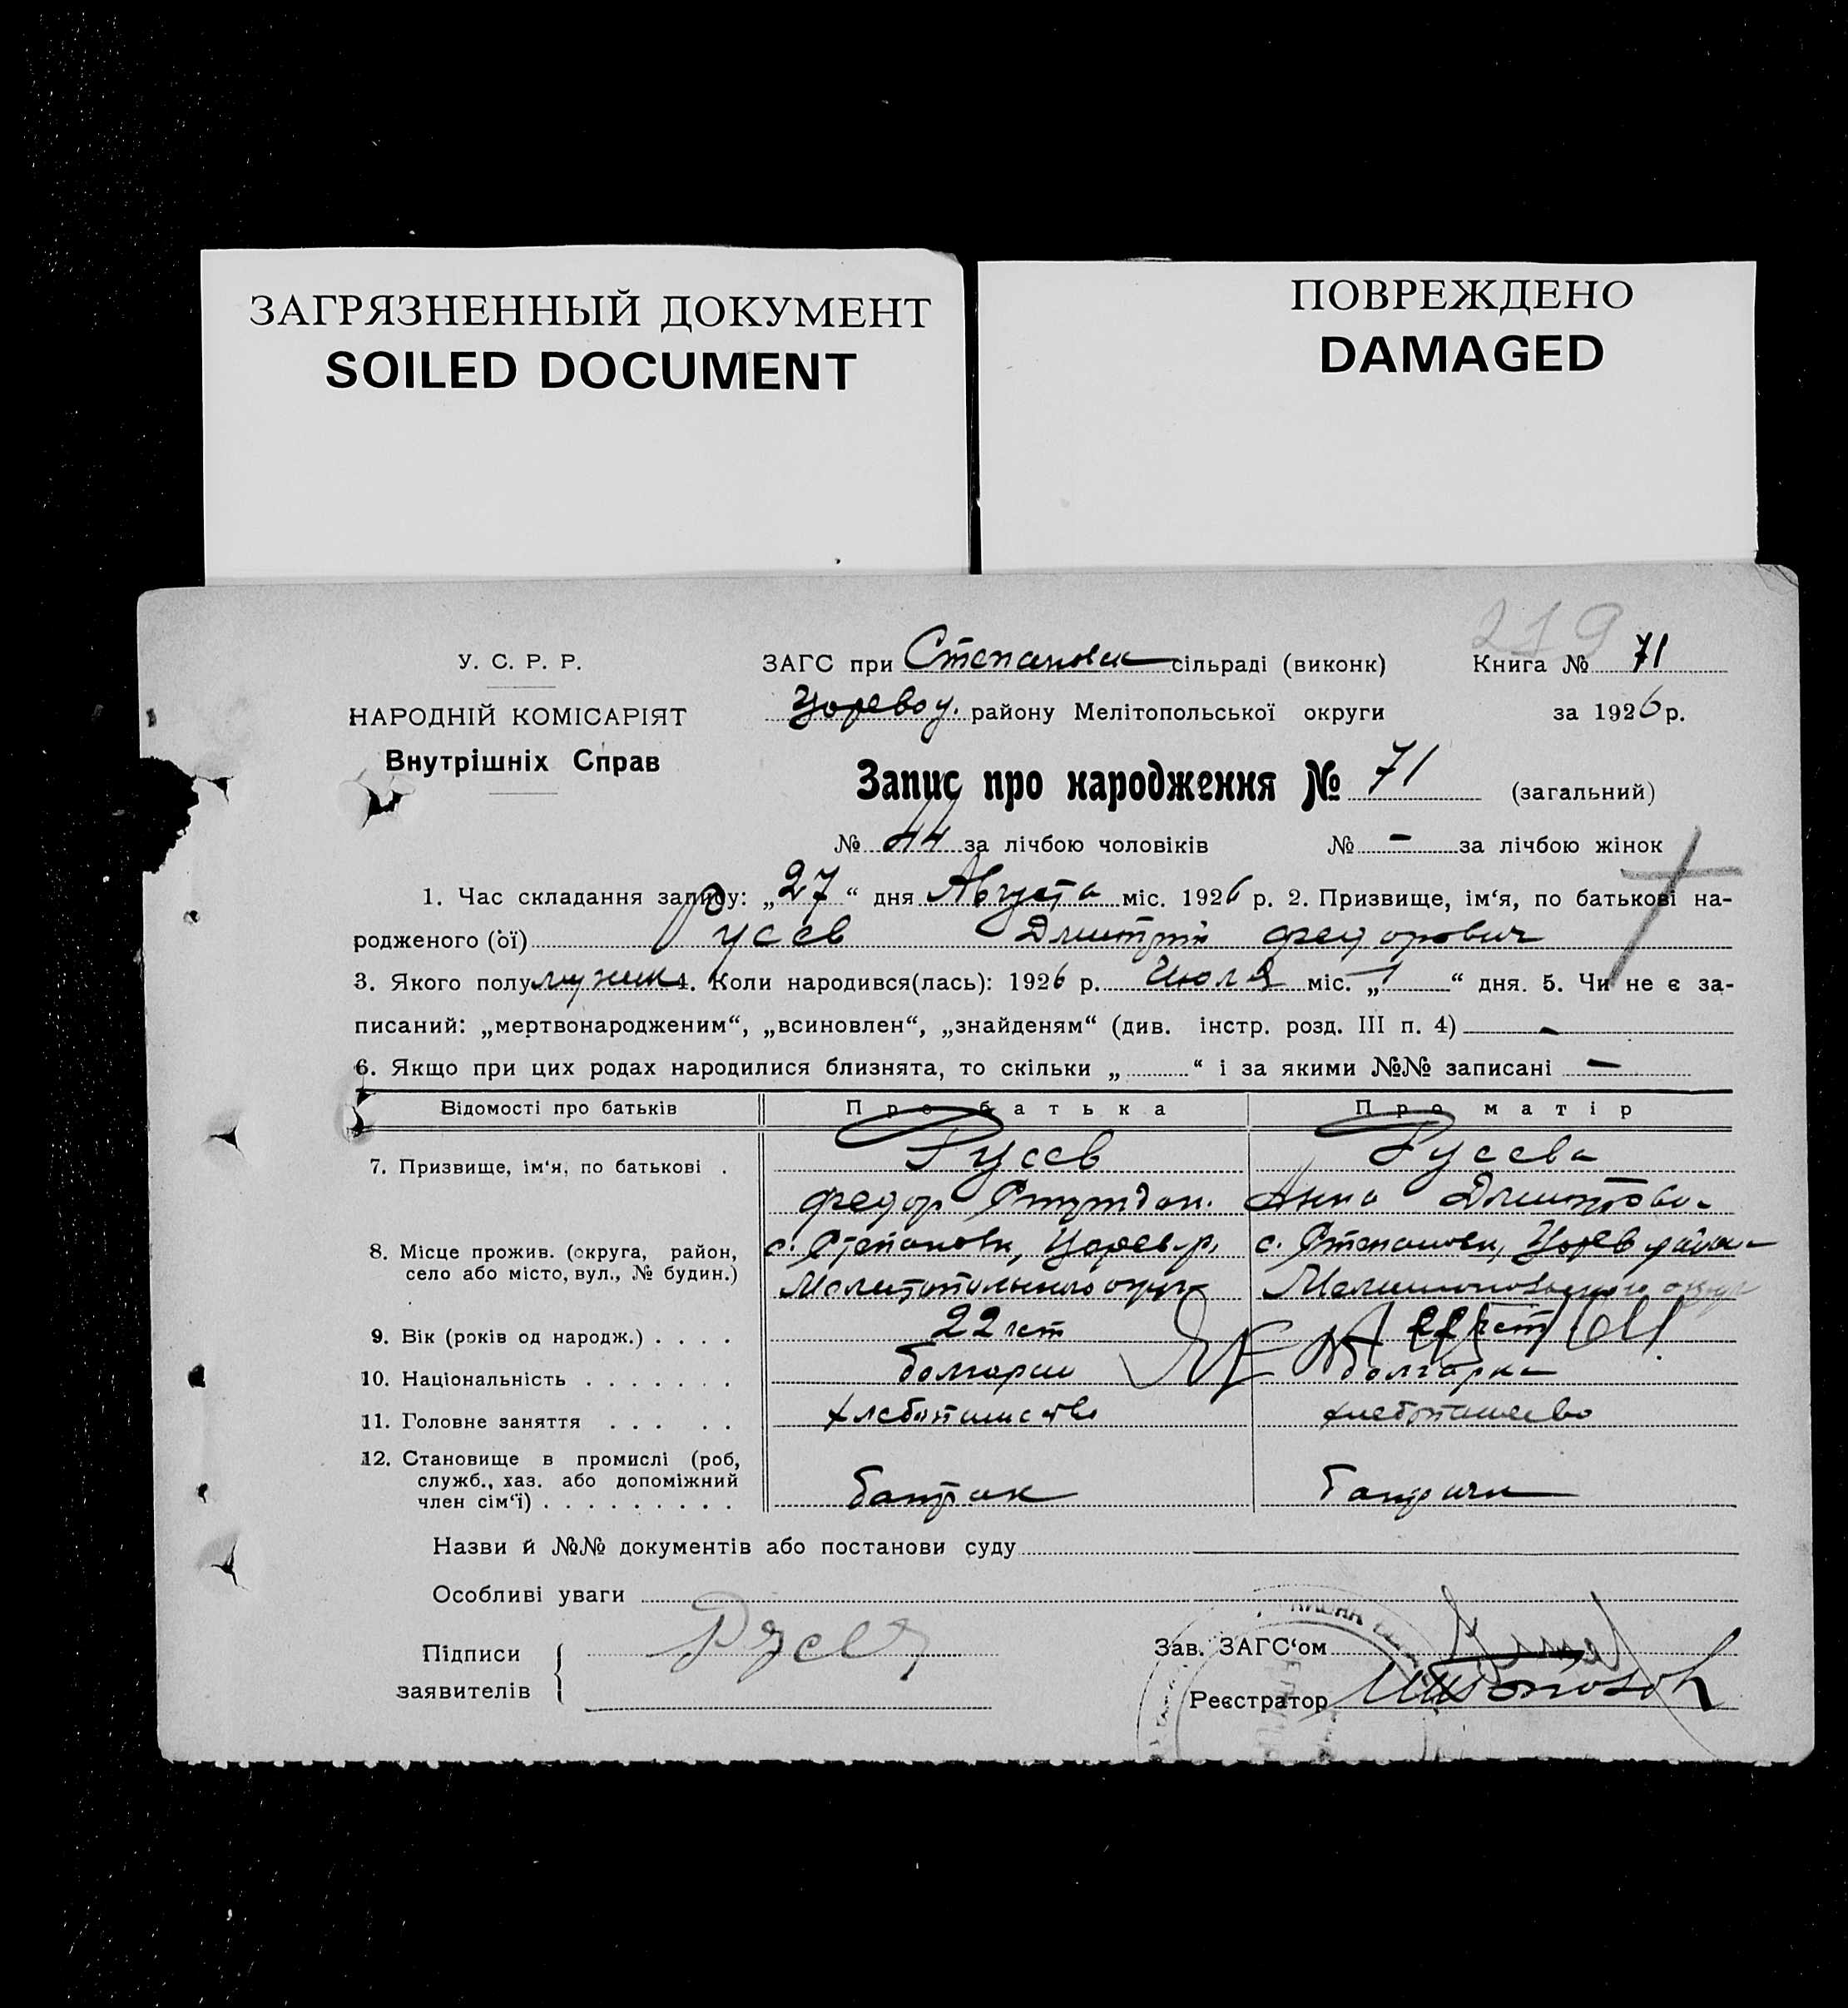 ЗАГРЯЗНЕННЫЙ ДОКУМЕНТ
SOILED DOCUMENT
ПОВРЕЖДЕНО
DAMAGED
219
У. С. Р. Р.
НАРОДНІЙ КОМІСАРІЯТ
Внутрішніх Справ
ЗАГС при Степановск сільраді (виконк)
Книга № 71
Царевод. району Мелітопольської округи
за 1926 р.
Запис про народження № 71 (загальний)
№ 44 за лічбою чоловіків № - за лічбою жінок
1. Час складання запису: „27“ дня Августа міс. 1926 р. 2. Призвище, ім‘я, по батькові на-
родженого (ої) Русев Дмитрий Федорович
3. Якого полу мужск 4. Коли народився(лась): 1926 р. Июля міс. „1“ дня. 5. Чи не є за-
писаний: „мертвонародженим“, „всиновлен“, „знайденям“ (див. інстр. розд. III п. 4) -
6. Якщо при цих родах народилися близнята, то скільки „ “ і за якими №№ записані -
Відомості про батьків Про батька Про матір
7. Призвище, ім‘я, по батькові . Русев Русева
Федор Анна Дмитрова
8. Місце прожив. (округа, район, с. Степановк, Царев. р. с. Степановк, Царев района
село або місто, вул., № будин.) Мелитопольского округ Мелитопольского округ
9. Вік (років од народж.) . . . . 22 лет 22 лет
10. Національність . . . . . . . болгарин болгарка
11. Головне заняття . . . . . хлебопашество хлебопашество
12. Становище в промислі (роб,
служб., хаз. або допоміжний
член сім‘ї) . . . . . . . . . батрак батрачк
Назви й №№ документів або постанови суду
Особливі уваги
Підписи
заявителів
Русев
Зав. ЗАГС‘ом
Реєстратор